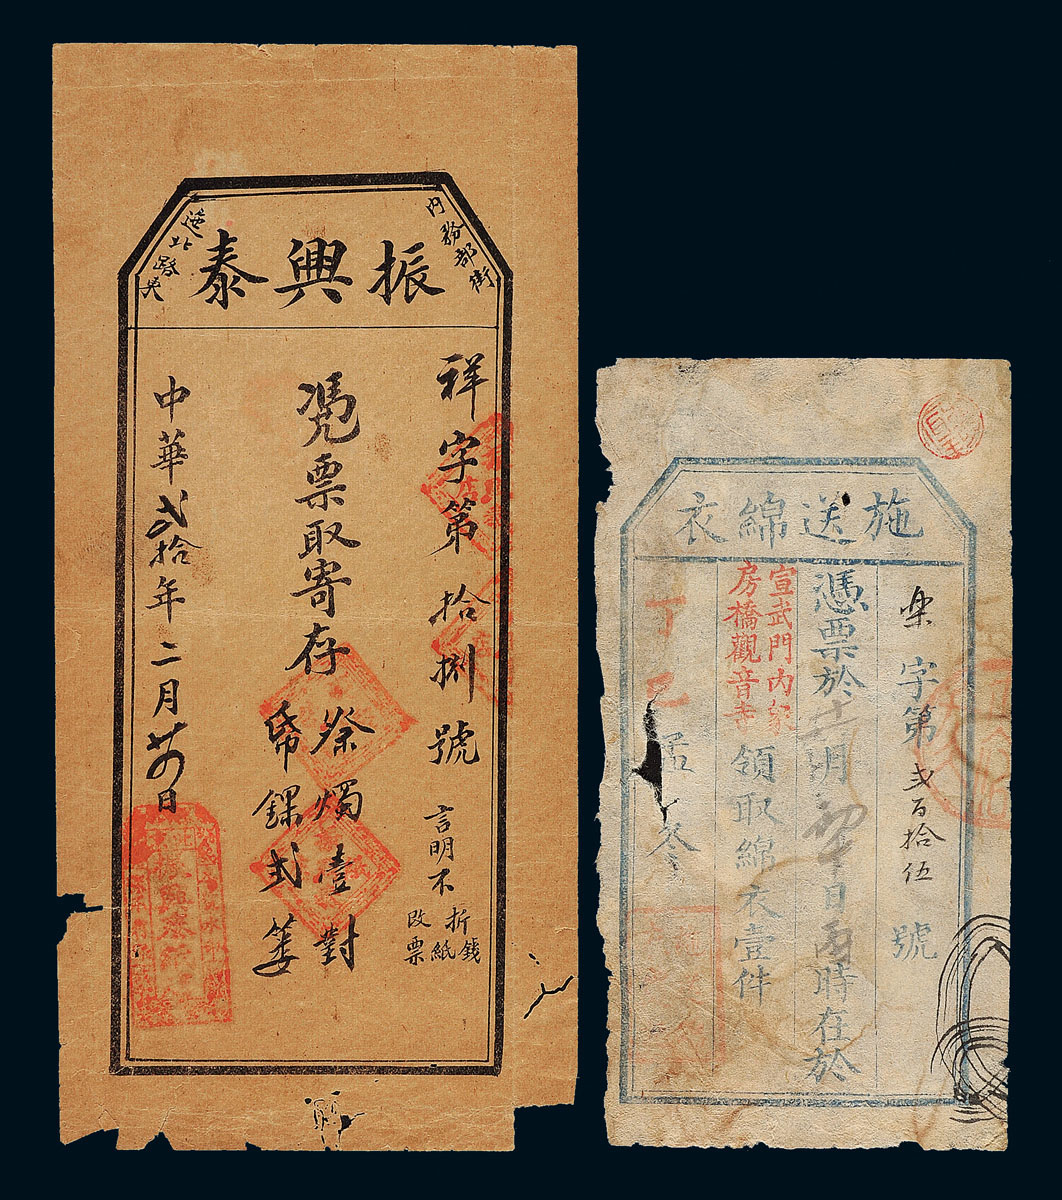 內務部街
振興泰
迤北路東
祥字第拾捌號 言明不折錢 紙 改票
憑票取寄存
祭燭壹對
帋錁弍簍
中華弍拾年二月廿日
施送綿衣
楽字第弍百拾伍號
憑票於十一月初十日 時在於
宣武門內
房橋觀音寺
領取綿衣壹件
丁巳孟冬